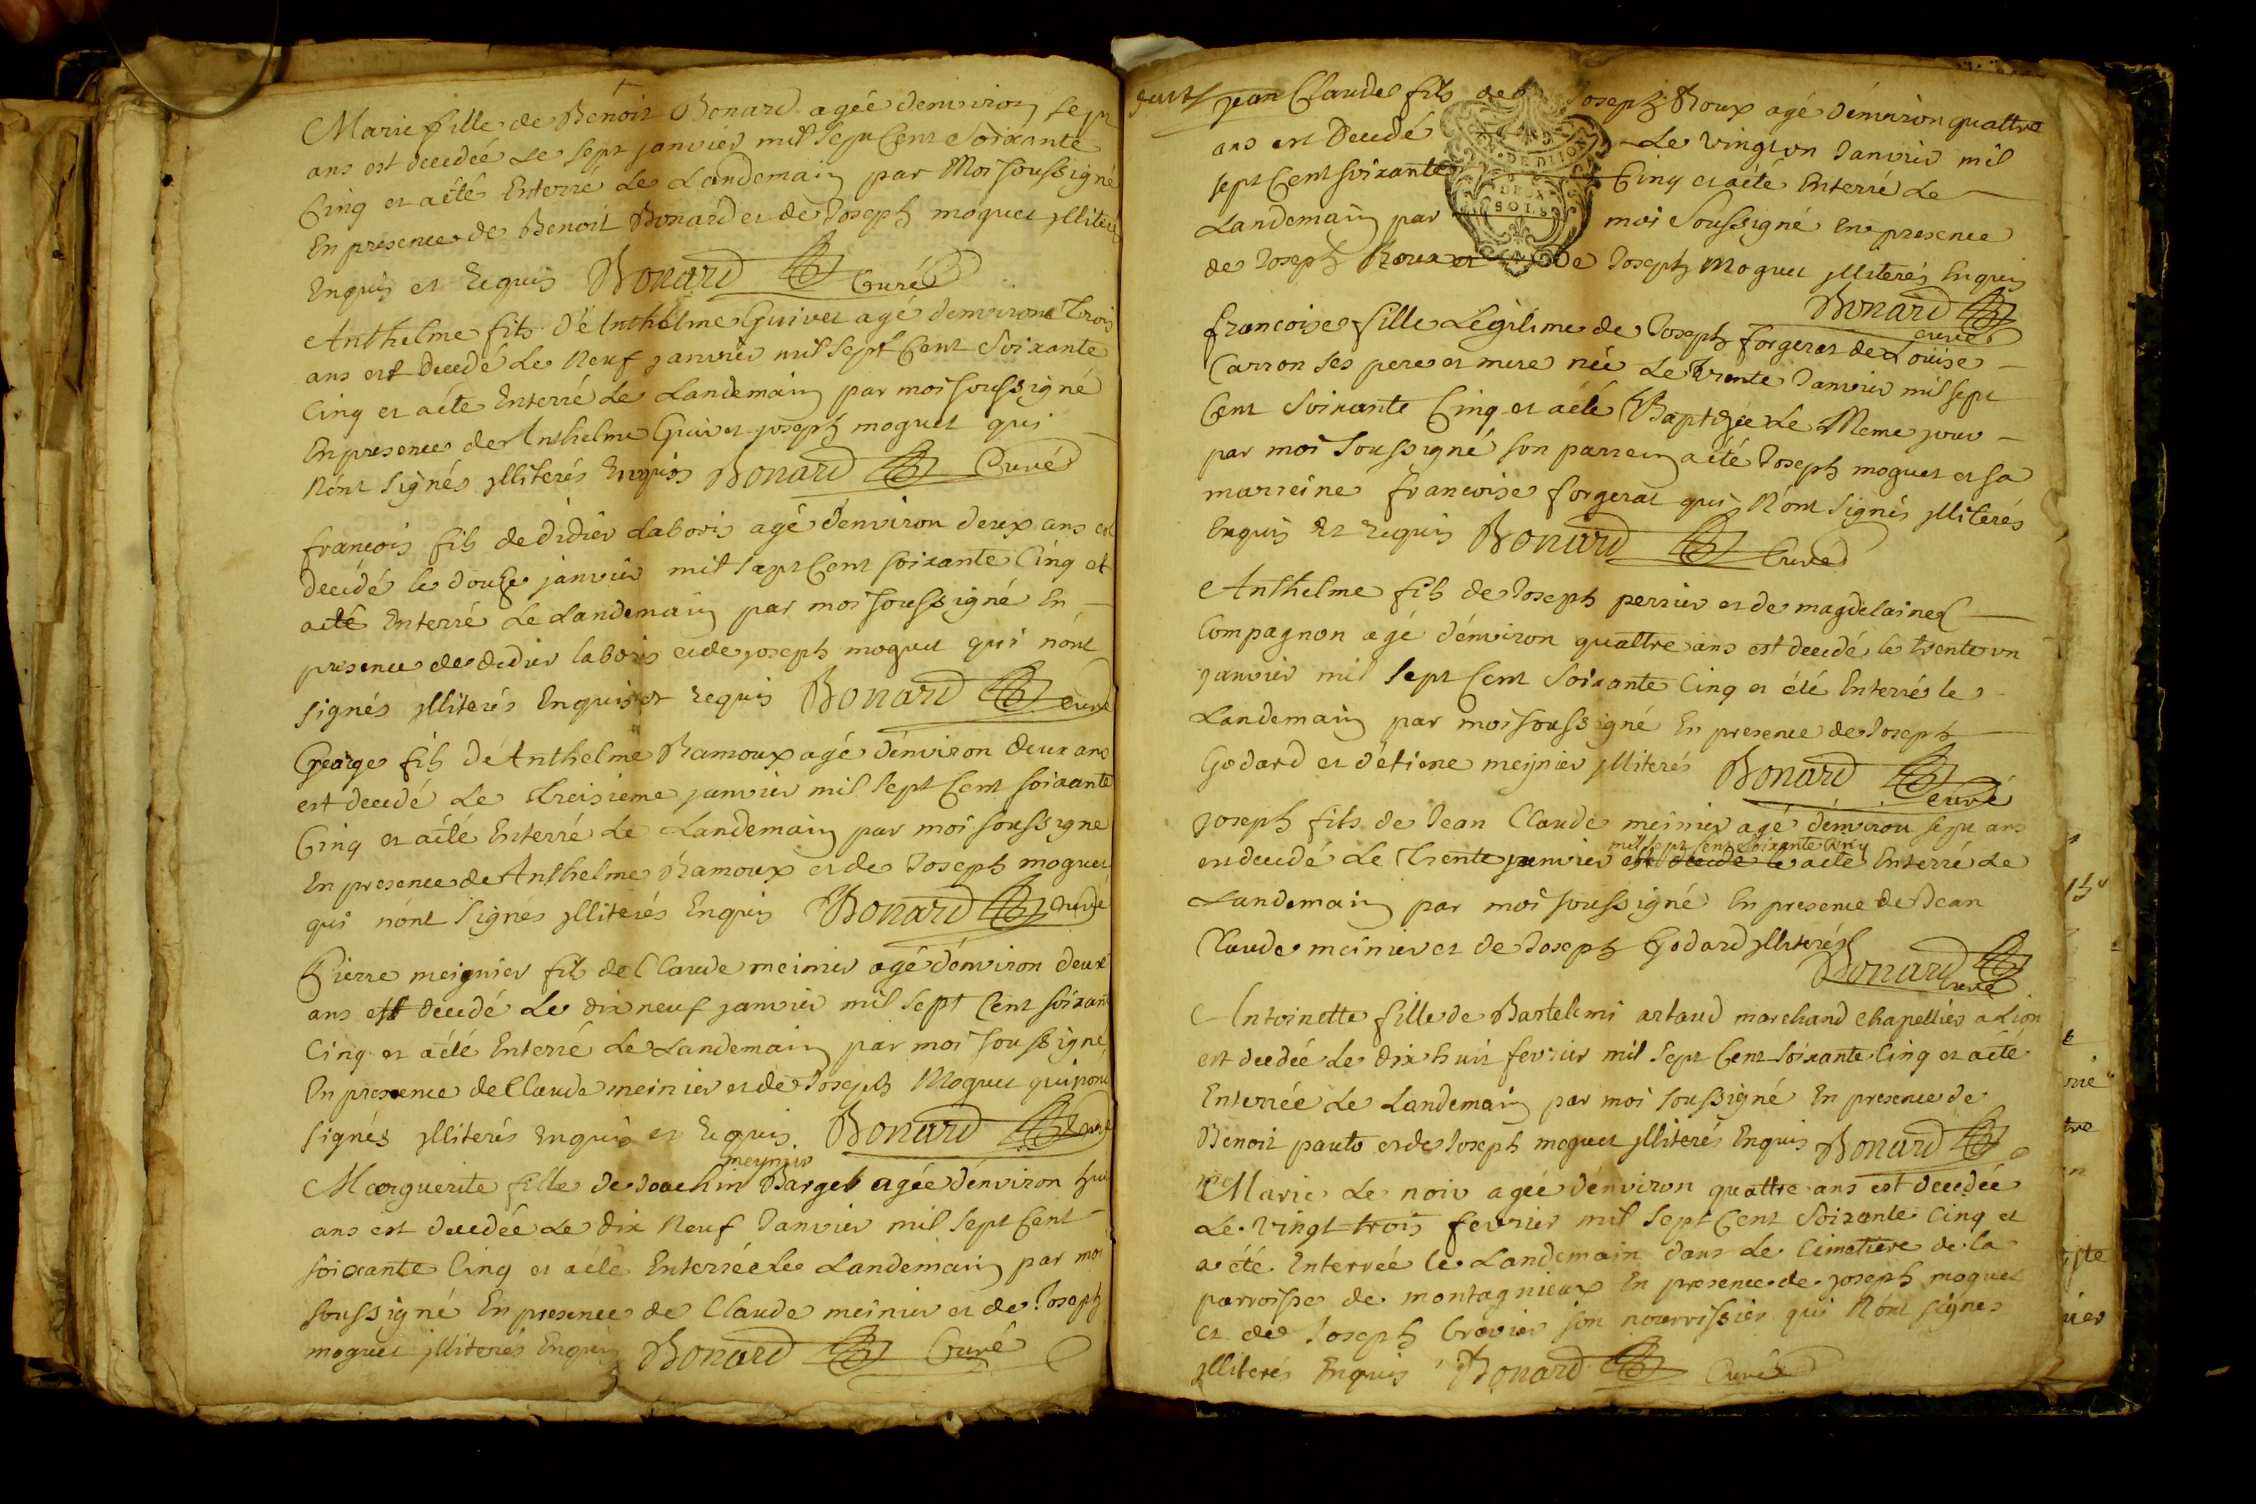 Marie fille de Benoit Bonard agée denviron sept
ans est decedée Le sept janvier mil sept Cent Soixante
Cinq et aété Enterré Le Landemain par Moi soussigné
En presence de Benoit Bonard et de Joseph moguet jlliterés
Enquis et Requis Bonard Curé
Anthelme fils D'Enthelme Guivet agé denviron Trois
ans est Decedé Le Neuf janvier mil sept Cent Soixante
Cinq et aété Enterré Le Landemain par moi soussigné
En presence de Anthelme Guivet joseph moguet qui
N'ont signés jlliterés Enquis Bonard Curé
francois fils de didier Laboris agé d'environ deux ans est
decédé le douze janvier mil sept Cent soixante Cinq et
aété Enterré Le Landemain par moi soussigné En
presence de didier laboris et de joseph moguet qui n'ont
signés jlliterés Enquis et requis Bonard Curé
George fils d'Anthelme Ramoux agé d'environ deux ans
est decedé Le Treisieme janvier mil sept Cent soixante
Cinq et aété Enterré Le Landemain par moi soussigne
En presence de Anthelme Ramoux et de Joseph moguet
qui n'ont signés jlliterés Enquis Bonard Curé
Pierre meignier fils de Claude meinier agé d'environ deux
ans est decedé Le dix neuf janvier mil sept Cent soixant
Cinq et aété Enterré Le Landemain par moi soussigné
En presence de Claude meinier et de Joseph Moguet qui n'ont
signés jlliterés Enquis et Requis Bonard Curé
meynier
Marguerite fille de Joachin Barget agée d'environ huit
ans est decedée Le dix Neuf Janvier mil sept Cent
soixante Cinq et aété Enterrée Le Landemain par moi
soussigné En presence de Claude meinier et de Joseph
moguet jlliterés Enquis Bonard Curé
Jean Claude fils de Joseph Roux agé d'environ quattre
ans est Decedé Le vingt un Janvier mil
sept Cent soixante Cinq et aété Enterré Le
Landemain par moi soussigné En presence
de Joseph Roux et de Joseph Moguet jlliterés Enquis
Bonard
curé
DE DIJON
DEUX
SOLS
francoise fille Legitime de Joseph forgerat de Louise
Carron ses pere et mere née Le Trente Janvier mil sept
Cent Soixante Cinq et aété Baptizée Le Meme jour
par moi soussigné son parrein aété Joseph moguet et sa
marreine francoise forgerat qui N'ont signés jlliterés
Enquis Et requis Bonard Curé
Anthelme fils de Joseph perrier et de magdelaine
Compagnon agé d'environ quattre ans est decedé le trente un
janvier mil sept Cent Soixante Cinq et été Enterré le
Landemain par moi soussigné En presence de Joseph
Godard et d'étiene meijnier jlliterés Bonard
Curé
joseph fils de Jean Claude meinier agé d'environ sept ans
mil sept Cent soixante Cinq
est decedé Le Trente janvier est decedé le aété Enterré Le
Landemain par moi soussigné En presence de Jean
Claude meinier et de Joseph Godard jlliterés
Bonard
Curé
Antoinette fille de Bartelemi artaud marchand Chapellier a Lion
est decedée Le dix huit fevrier mil sept Cent soixante Cinq et aété
Enterrée Le Landemain par moi soussigné En presence de
Benoit pauto et de Joseph moguet jlliterés Enquis Bonard
Marie Le noir agée d'environ quattre ans est decedée
Le vingt trois fevrier mil sept Cent Soixante Cinq et
a été Enterrée le Landemain dans Le Cimetiere de la
parroisse de montagnieux En presence de joseph moguet
et de Joseph Cravier son nourrissier qui N'ont signes
jlliterés Enquis Bonard Curé